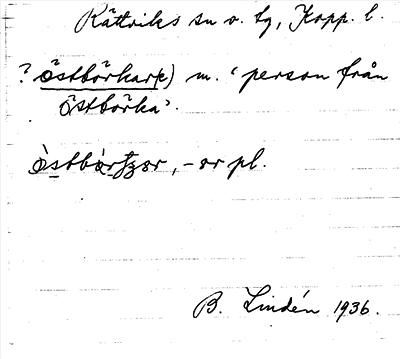 Rättviks sn o. tg, Kopp. l.
? östbörkar(e) m. ‘person från
östbörka’.
òstbàrʃzɘr, -ɘr pl.
B. Lindén 1936.